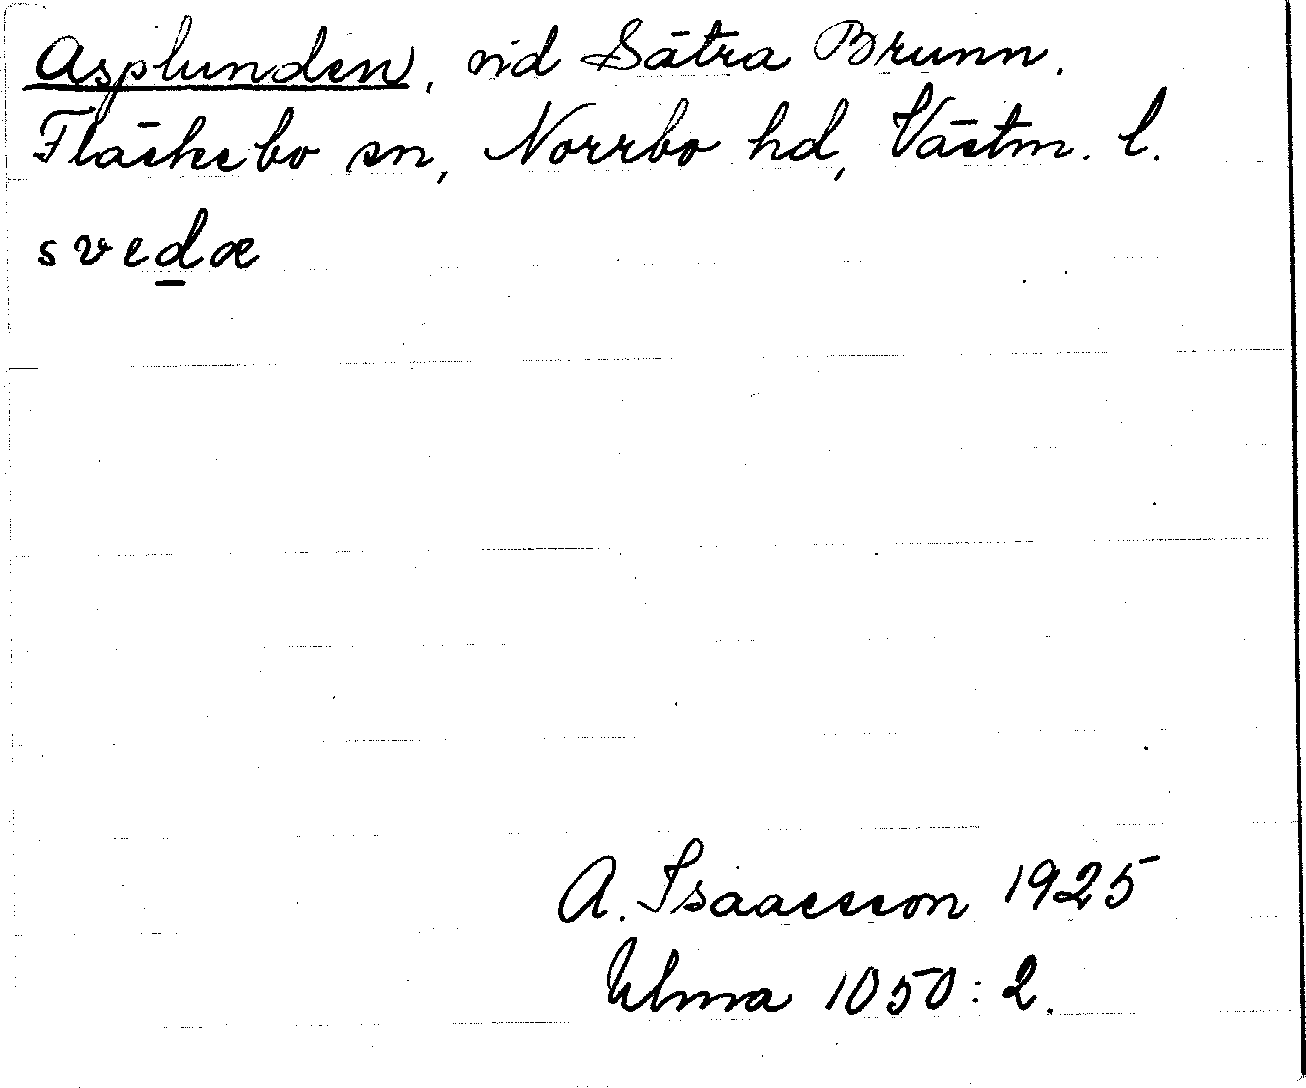 Asplunden, vid Sätra Brunn.
Fläckebo sn, Norrbo hd, Västm. l.
svedæ
A. Isaacsson 1925
Ulma 1050:2.